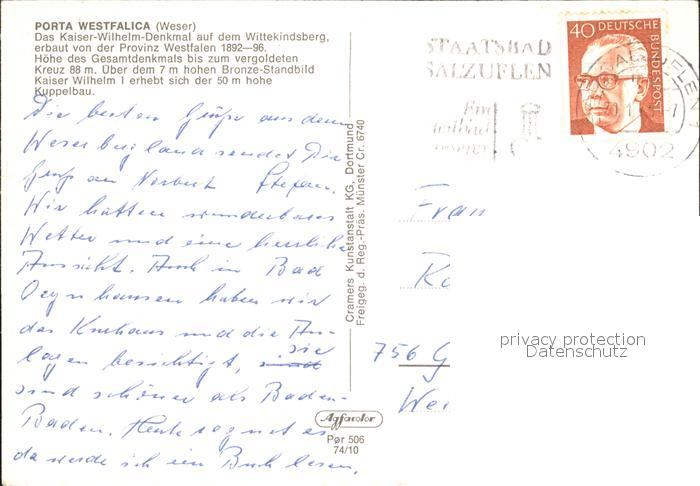 PORTA WESTFALICA (Weser)
Das Kaiser-Wilhelm-Denkmal auf dem Wittekindsberg,
erbaut von der Provinz Westfalen 1892—96.
Höhe des Gesamtdenkmals bis zum vergoldeten
Kreuz 88 m. Über dem 7 m hohen Bronze-Standbild
Kaiser Wilhelm I erhebt sich der 50 m hohe
Kuppelbau.
Die besten Grüße aus dem
Weserbergland sendet Dir
Gruß an Norbert Stefan.
Wir hatten wunderbares
Wetter und eine herrliche
Aussicht. Auch in Bad
Oeynhausen haben wir
das Kurhaus und die An-
lagen besichtigt, sie
sind schöner als Baden-
Baden. Heute regnet es
da werde ich ein Buch lesen.
Cramers Kunstanstalt KG, Dortmund
Freigeg. d. Reg.-Präs. Münster Cr. 6740
Agfacolor
Por 506
74/10
STAATSBAD
SALZUFLEN
40 DEUTSCHE
BUNDESPOST
4902
Frau
756 G
privacy protection
Datenschutz